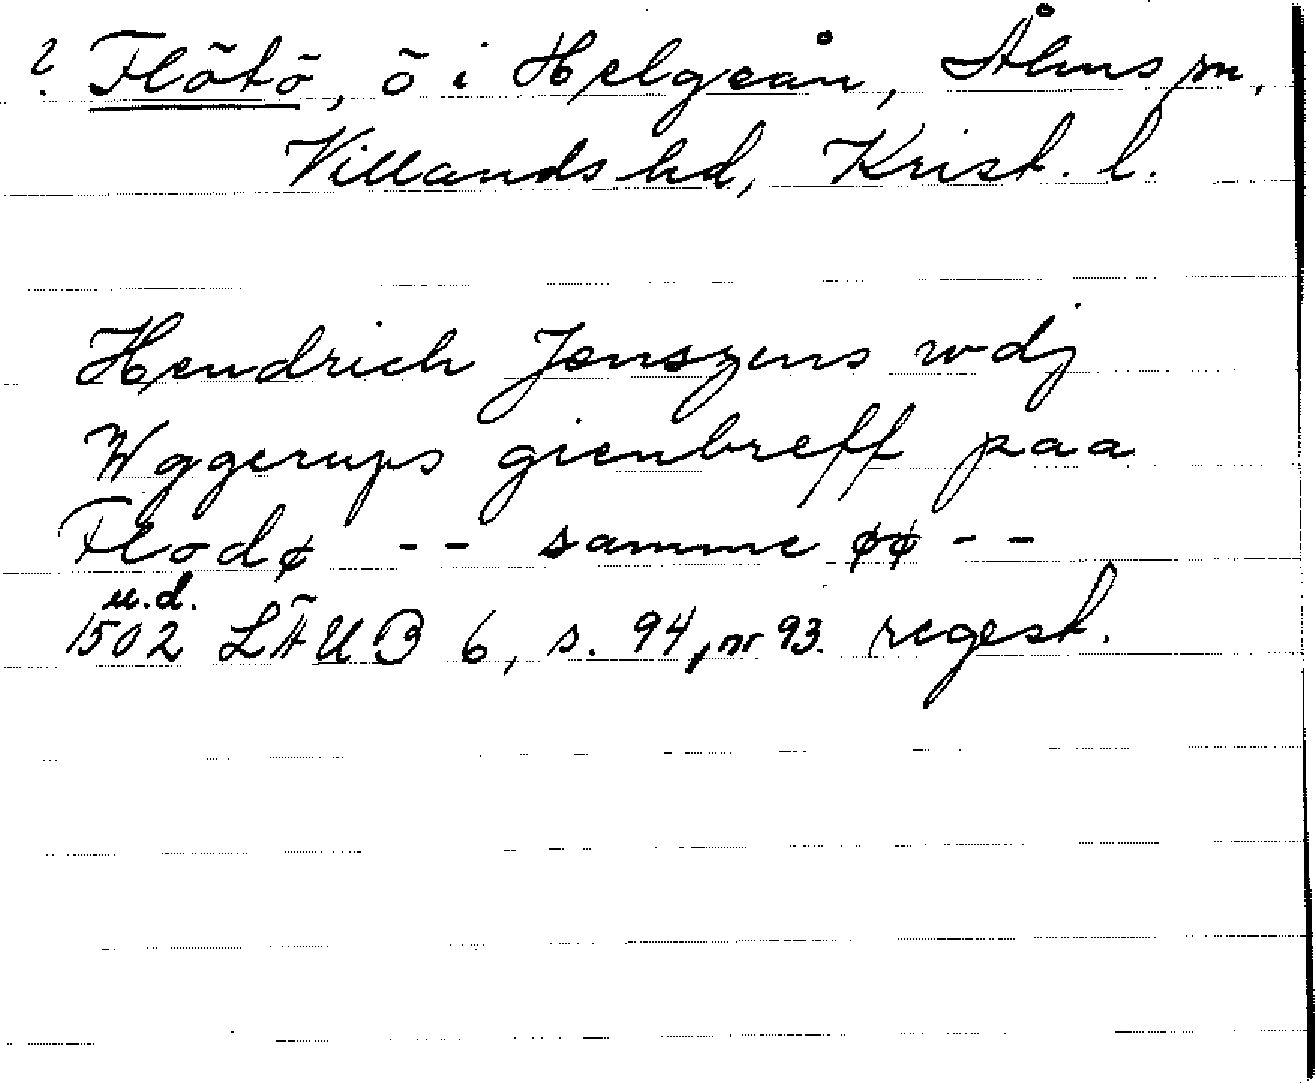 ? Flötö, ö i Helgeån, Åhus sn,
Villands hd, Krist. l.
Hendrich Jenszens wdj
Wggerups gienbreff paa
Flodø -- samme øø --
u.d.
1502 LÄUB 6, s. 94, nr 93. regest.